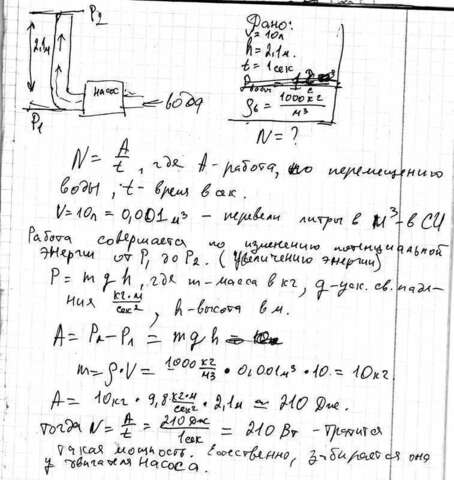 P₂
2,1м
насос
вода
P₁
Дано:
V=10л
h=2,1м.
t=1сек
ρв = 1000кг/м³
N=?
N = A/t, где A-работа, по перемещению
воды, t-время в сек.
V=10л=0,001м³ - перевели литры в м³-в СИ
Работа совершается по изменению потенциальной
энергии от P₁ до P₂. (увеличению энергии)
P=mgh, где m-масса в кг, g-уск. св. паде-
ния кг·м/сек², h-высота в м.
A = P₂-P₁ = mgh
m=ρ·V = 1000кг/м³ · 0,001м³ · 10 = 10кг
A = 10кг · 9,8 кг·м/сек² · 2,1м ≃ 210 Дж.
Тогда N = A/t = 210 Дж/1сек = 210 Вт - тратится
такая мощность. Естественно, забирается она
у двигателя насоса.